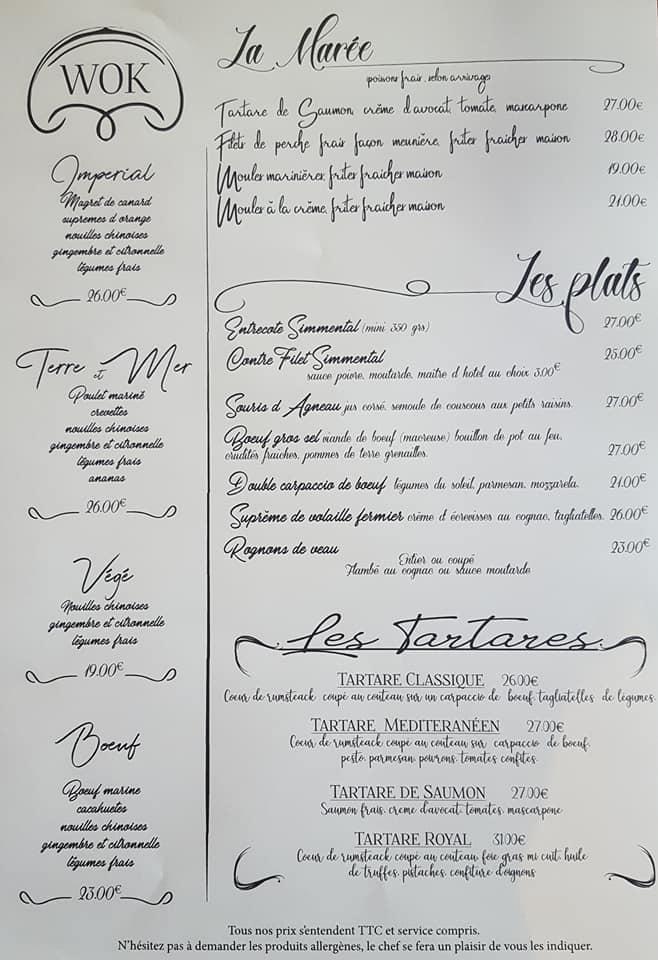 WOK
Imperial
Magret de canard
supremes d orange
nouilles chinoises
gingembre et citronnelle
légumes frais
26.00€
Terre et Mer
Poulet mariné
crevettes
nouilles chinoises
gingembre et citronnelle
légumes frais
ananas
26.00€
Végé
Nouilles chinoises
gingembre et citronnelle
légumes frais
19.00€
Boeuf
Boeuf marine
cacahuetes
nouilles chinoises
gingembre et citronnelle
légumes frais
23.00€
La Marée
poissons frais, selon arrivages
Tartare de Saumon, crème d'avocat, tomate, mascarpone 27.00€
Filets de perche frais façon meunière, frites fraiches maison 28.00€
Moules marinières, frites fraiches maison 19.00€
Moules à la crème, frites fraiches maison 21.00€
Les plats
Entrecote Simmental (mini 350 grs) 27.00€
Contre Filet Simmental 25.00€
sauce poivre, moutarde, maitre d hotel au choix 3.00€
Souris d Agneau jus corsé, semoule de couscous aux petits raisins. 27.00€
Boeuf gros sel viande de boeuf (macreuse) bouillon de pot au feu,
crudités fraiches, pommes de terre grenailles. 27.00€
Double carpaccio de boeuf légumes du soleil, parmesan, mozzarela. 21.00€
Suprème de volaille fermier crème d écrevisses au cognac, tagliatelles. 26.00€
Rognons de veau 23.00€
Entier ou coupé
Flambé au cognac ou sauce moutarde
Les Tartares
TARTARE CLASSIQUE 26.00€
Coeur de rumsteack coupé au couteau sur un carpaccio de boeuf, tagliatelles de légumes.
TARTARE MEDITERANÉEN 27.00€
Coeur de rumsteack coupé au couteau sur carpaccio de boeuf,
pesto, parmesan, poivrons, tomates confites.
TARTARE DE SAUMON 27.00€
Saumon frais, creme d'avocat, tomates, mascarpone
TARTARE ROYAL 31.00€
Coeur de rumsteack coupé au couteau, foie gras mi cuit, huile
de truffes, pistaches, confiture d'oignons
Tous nos prix s'entendent TTC et service compris.
N'hésitez pas à demander les produits allergènes, le chef se fera un plaisir de vous les indiquer.